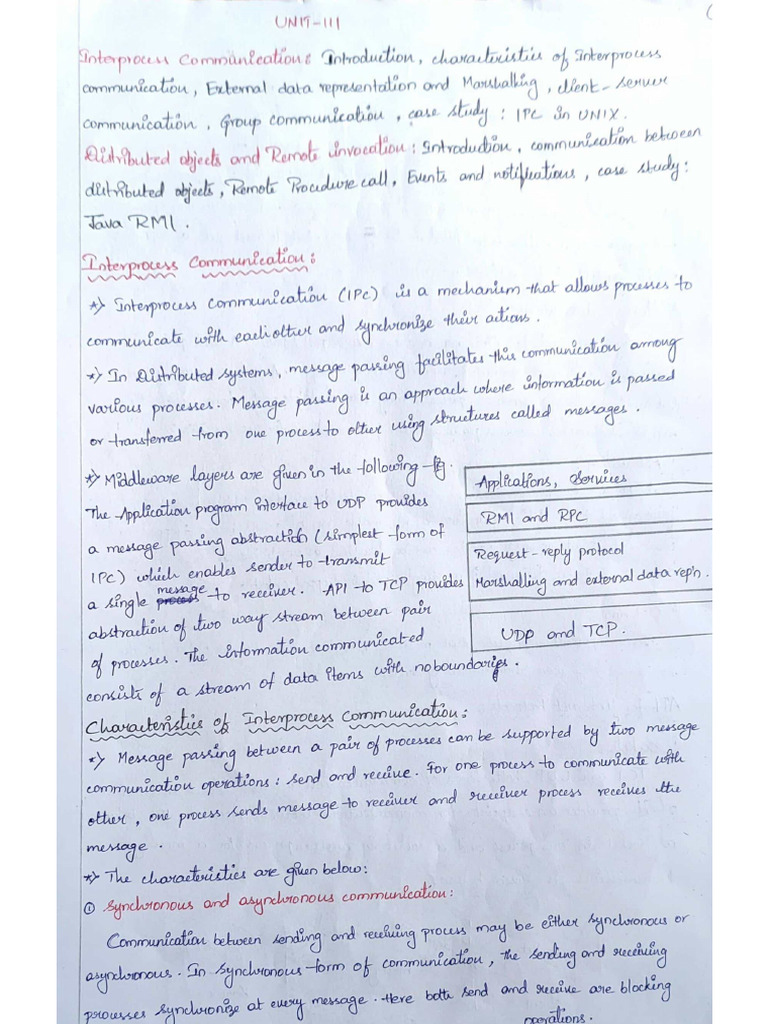 UNIT-III
Interprocess Communication: Introduction, characteristics of Interprocess
communication, External data representation and Marshalling, client-server
communication, Group communication, case study: IPC in UNIX.
Distributed objects and Remote invocation: Introduction, communication between
distributed objects, Remote Procedure call, Events and notifications, case study:
Java RMI.
Interprocess Communication:
*> Interprocess communication (IPC) is a mechanism that allows processes to
communicate with each other and synchronize their actions.
*> In Distributed systems, message passing facilitates this communication among
various processes. Message passing is an approach where information is passed
or transferred from one process to other using structures called messages.
*> Middleware layers are given in the following fig.
The Application program interface to UDP provides
a message passing abstraction (simplest form of
IPC) which enables sender to transmit
a single message to receiver. API to TCP provides
abstraction of two way stream between pair
of processes. The information communicated
consists of a stream of data items with no boundaries.
Applications, Services
RMI and RPC
Request-reply protocol
Marshalling and external data rep'n.
UDP and TCP.
Characteristics of Interprocess Communication:
*> Message passing between a pair of processes can be supported by two message
communication operations: send and receive. For one process to communicate with
other, one process sends message to receiver and receiver process receives the
message.
*> The characteristics are given below:
① Synchronous and asynchronous communication:
Communication between sending and receiving process may be either synchronous or
asynchronous. In synchronous form of communication, the sending and receiving
processes synchronize at every message. Here both send and receive are blocking
operations.